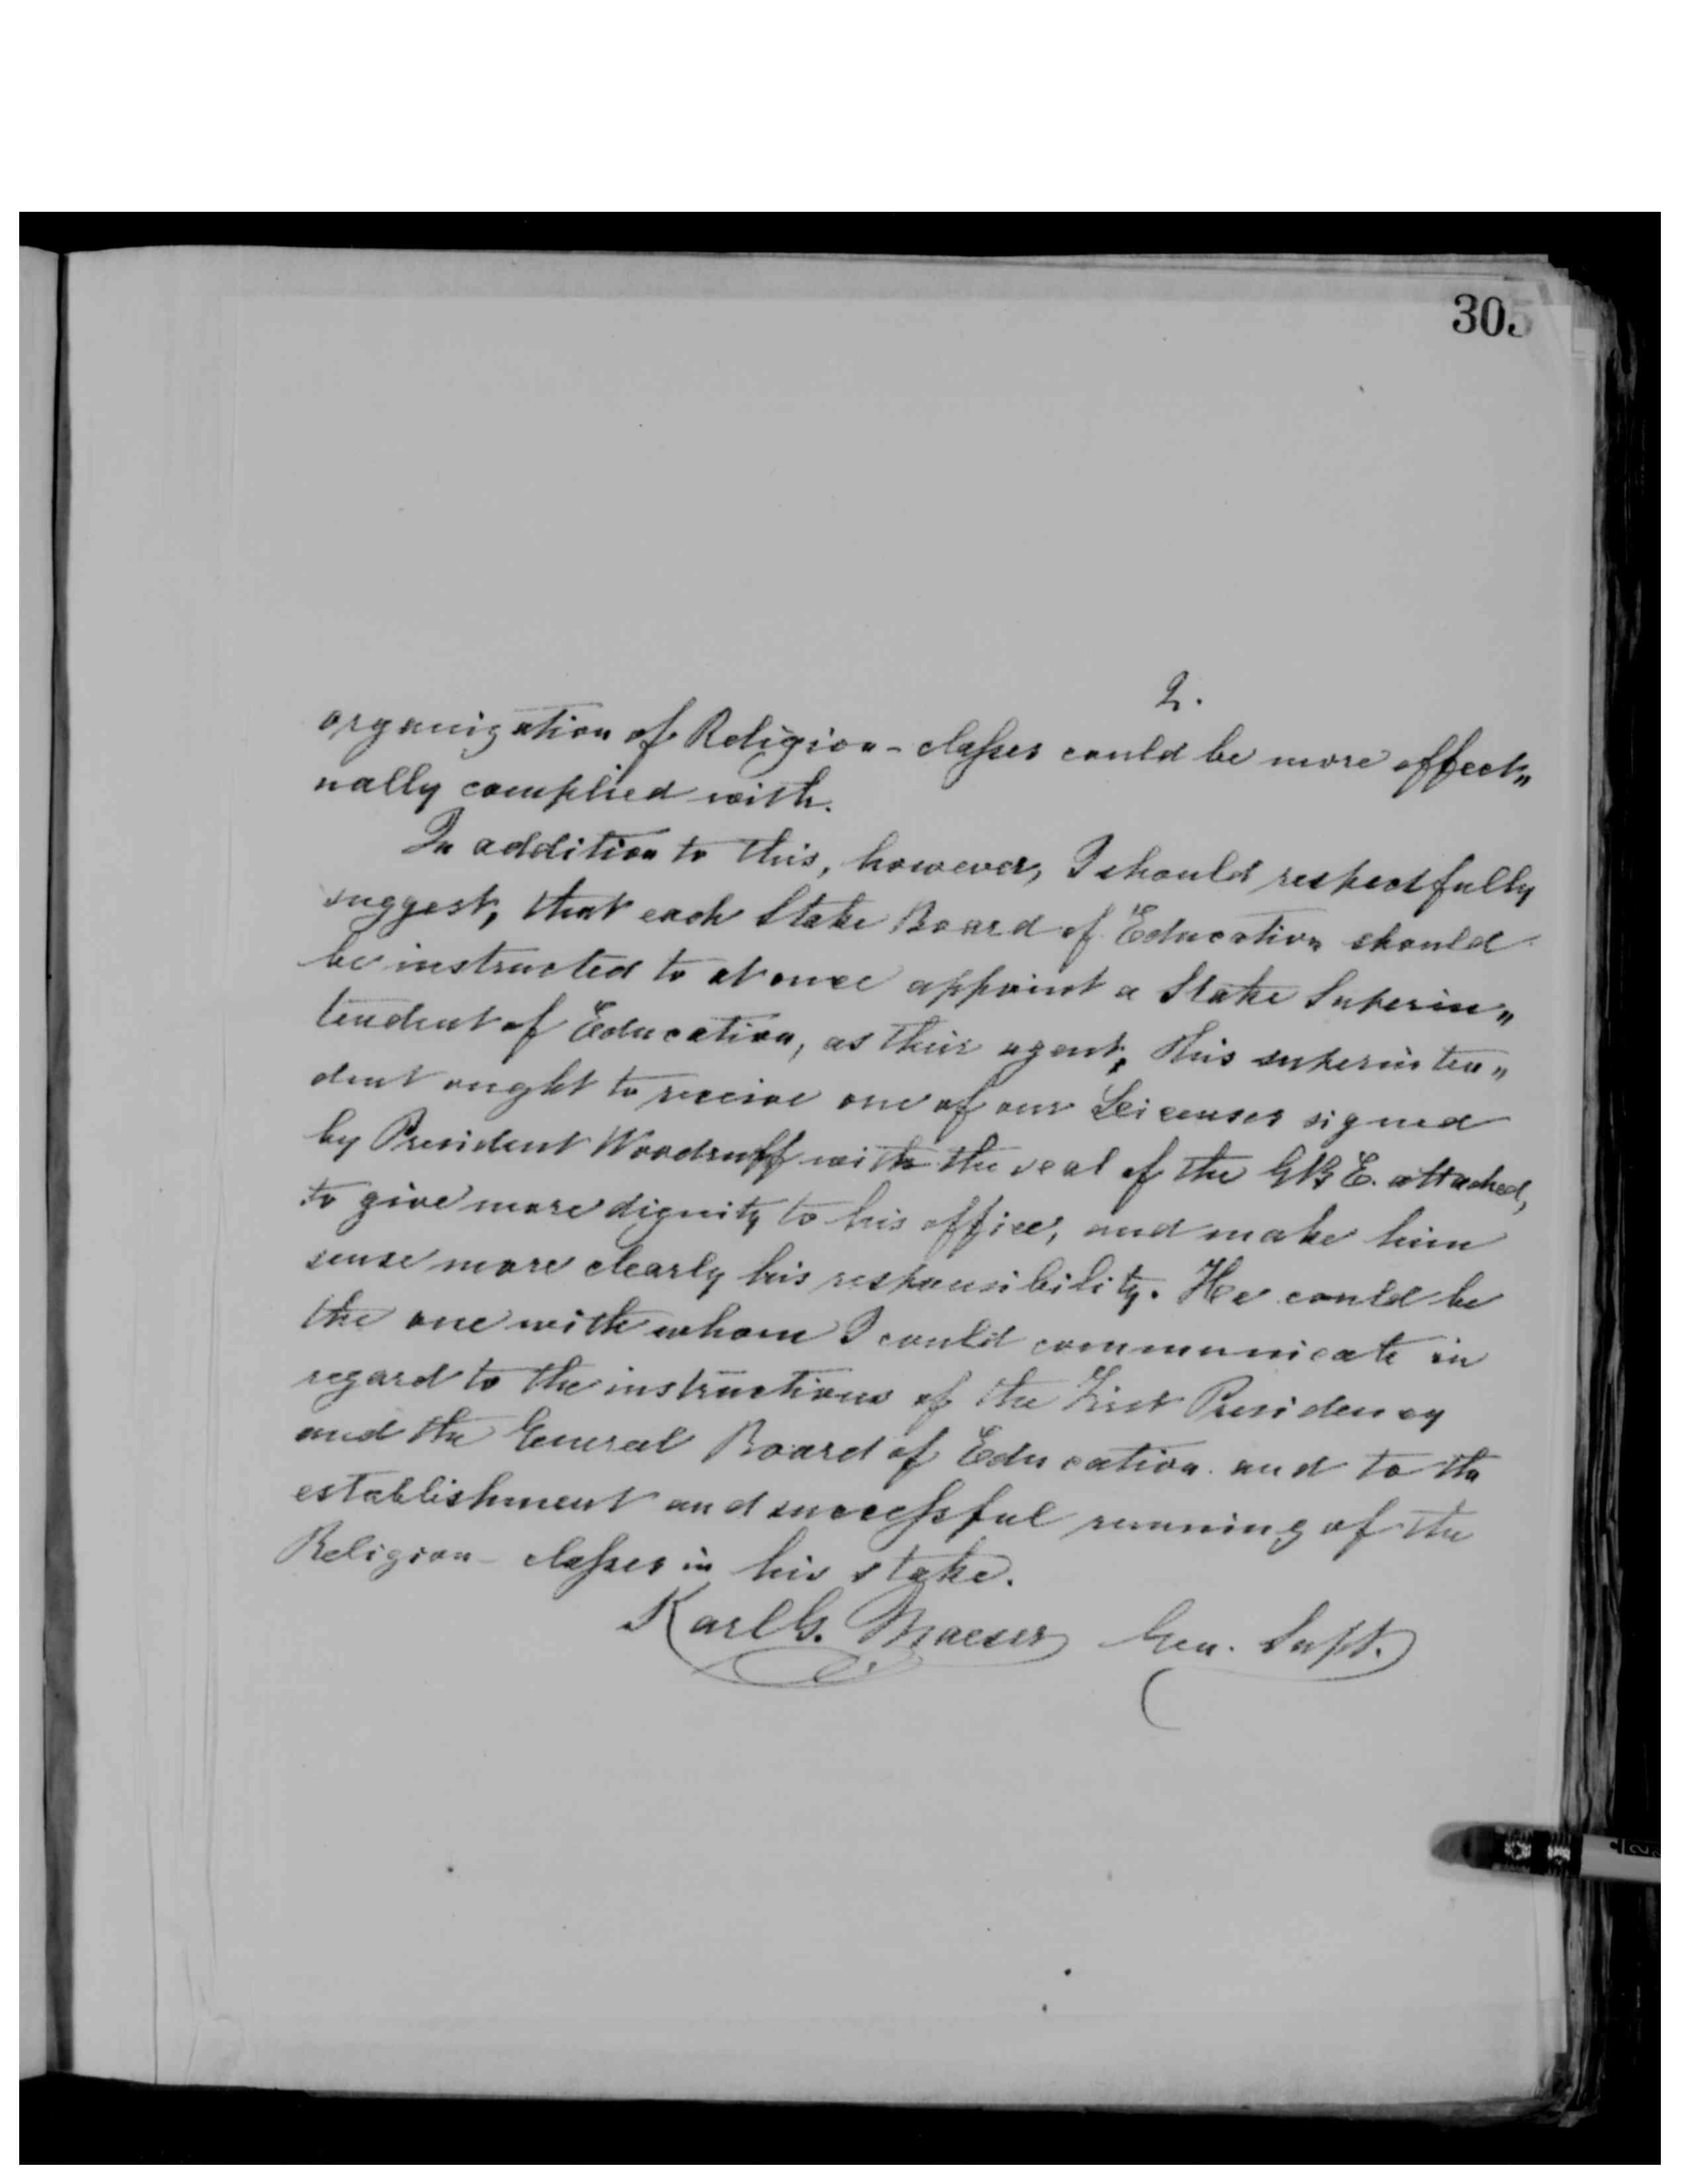 305
2.
organization of Religion-classes could be more effect„
ually complied with.
In addition to this, however, I should respectfully
suggest, that each Stake Board of Education should
be instructed to at once appoint a Stake Superin„
tendent of Education, as their agent, This superinten„
dent ought to receive one of our Licenses signed
by President Woodruff with the seal of the GBE. attached,
to give more dignity to his office, and make him
sense more clearly his responsibility. He could be
the one with whom I could communicate in
regard to the instructions of the First Presidency
and the General Board of Education and to the
establishment and successful running of the
Religion-classes in his stake.
Karl G. Maeser Gen. Supt.